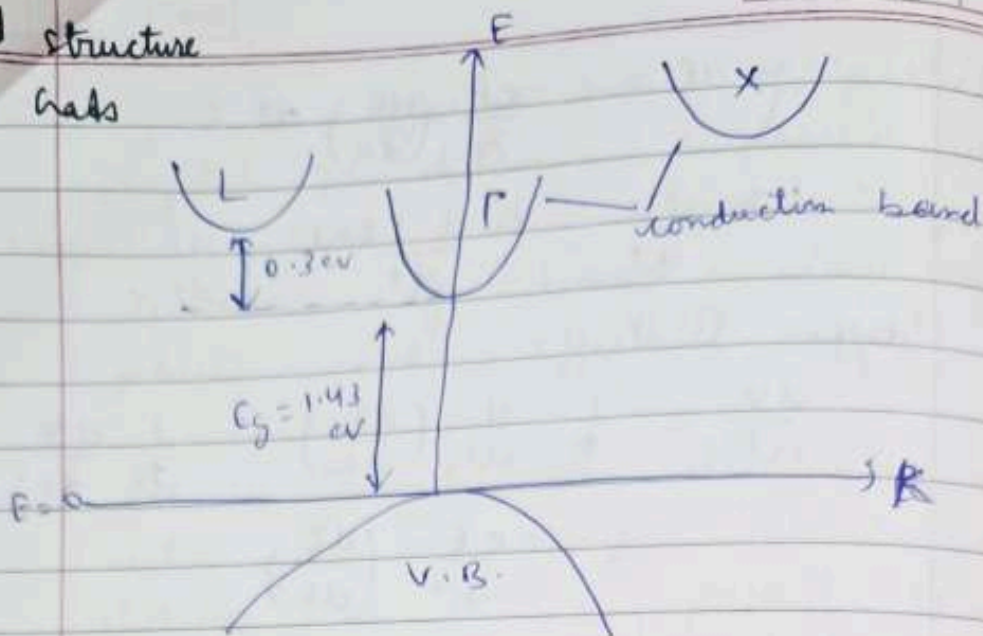 structure
GaAs
E
X
L
Γ
conduction band
0.3 eV
Eg = 1.43
eV
E = 0
k
V.B.